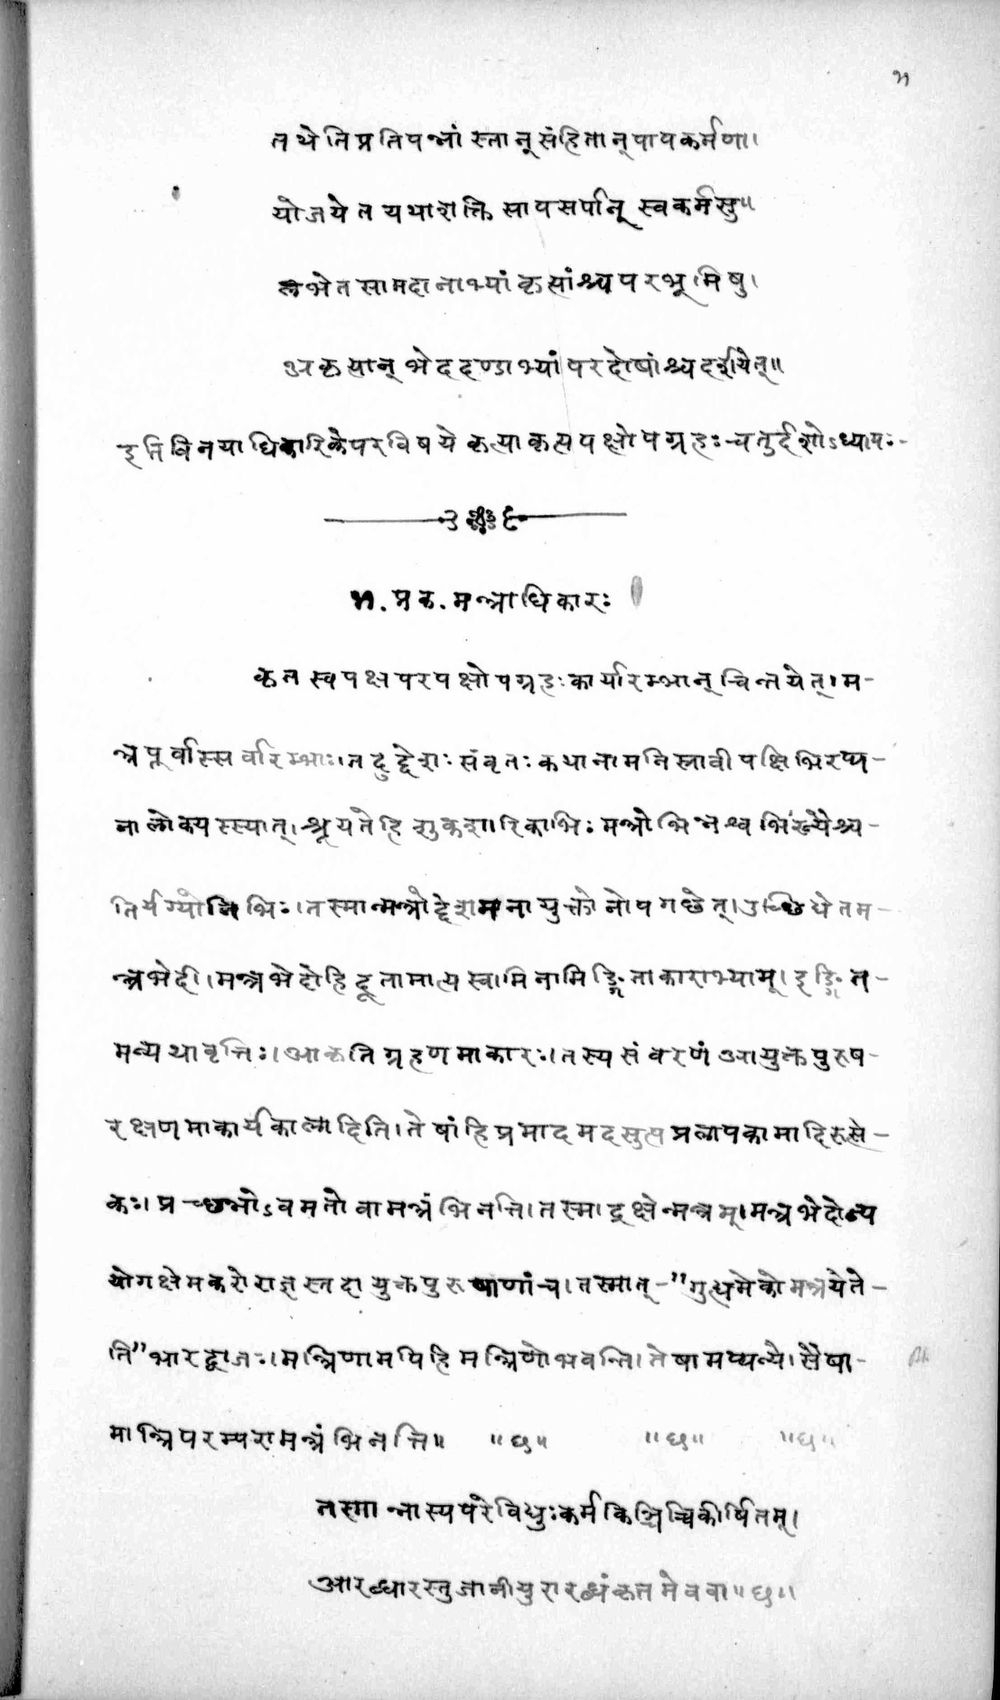 ५
तथेति प्रतिपन्नां स्तान् संहितान् पापकर्मणा।
योजयेत यथाशक्ति सापसर्पान् स्वकर्मसु॥
लभेत सामदानाभ्यां कृत्यांश्च परभूमिषु।
अकृत्यान् भेददण्डाभ्यां परदोषांश्च दर्शयेत्॥
इति विनयाधिकारिके परविषये कृत्याकृत्यपक्षोपग्रहः चतुर्दशोऽध्यायः-
५. प्रक. मन्त्राधिकारः
कृतस्वपक्षपरपक्षोपग्रहः कार्यारम्भान् चिन्तयेत्। म-
न्त्रपूर्वास्सर्वारम्भाः। तदुद्देशः संवृतः कथानामनिस्रावी पक्षिभिरप्य-
नालोक्यस्स्यात्। श्रूयते हि शुकशारिकाभिः मन्त्रो भिन्नश्वभिरन्यैश्च-
तिर्यग्योनिभिः। तस्मान्मन्त्रोद्देशमनायुक्तो नोपगछेत्। उच्छिद्येत म-
न्त्रभेदी। मन्त्रभेदो हि दूतामात्यस्वामिनामिङ्गिताकाराभ्याम्। इङ्गित-
मन्यथावृत्तिः। आकृतिग्रहणमाकारः। तस्य संवरणं आयुक्तपुरुष-
रक्षणमाकार्यकालादिति। तेषां हि प्रमादमदसुप्तप्रलापकामादिरुत्से-
कः। प्रच्छन्नोऽवमतो वा मन्त्रं भिनत्ति। तस्माद्रक्षेन्मन्त्रम्। मन्त्रभेदोन्य
योगक्षेमकरो राज्ञस्तदायुक्तपुरुषाणां च। तस्मात्-"गुह्यमेको मन्त्रयेते-
ति" भारद्वाजः। मन्त्रिणामपि हि मन्त्रिणो भवन्ति। तेषामप्यन्ये। सैषा-
मान्त्रिपरम्परा मन्त्रं भिनत्ति॥ ॥छ॥ ॥छ॥ ॥छ॥
तस्मान्नास्य परे विद्युः कर्म किञ्चिच्चिकीर्षितम्।
आरब्धारस्तु जानीयुरारब्धं कृतमेव वा॥छ॥